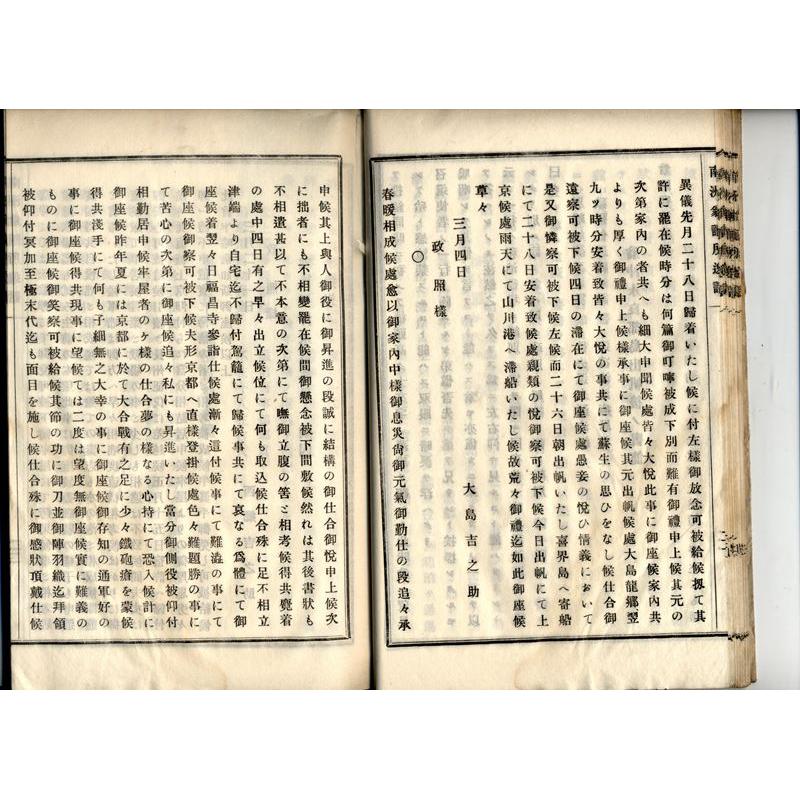 異儀先月二十八日歸着いたし候に付左樣御放念可被給候扨て其
許に罷在候時分は何篇御叮嚀被成下別而難有御禮申上候其元の
次第家內の者共へも細大申聞候處皆々大悅此事に御座候家內共
よりも厚く御禮申上候樣承事に御座候其元出帆候處大島龍鄕翌
九ツ時分安着致皆々大悅の事共にて蘇生の思ひをなし候仕合御
遠察可被下候四日の滯在にて御座候處愚妾の悅ひ情義において
是又御憐察可被下候左候而二十六日朝出帆いたし喜界島へ寄船
にて二十八日安着致候處親類の悅御察可被下候今日出帆にて上
京候處雨天にて山川港へ滯船いたし候故荒々御禮迄如此御座候
草々
三月四日
大島吉之助
政照樣
○
春暖相成候處愈以御家內中樣御息災尙御元氣御勤仕の段追々承
申候其上與人御役に御昇進の段誠に結構の御仕合御悅申上候次
に拙者にも不相變罷在候間御懸念被下間敷候然れは其後書狀も
不相遣甚以て不本意の次第にて嘸御立腹の筈と相考候得共覽着
の處中四日有之早々出立候位にて何も取込候仕合殊に足不相立
津端より自宅迄不歸付駕籠にて歸候事共にて哀なる爲體にて御
座候着翌々日福昌寺參詣仕候處漸々這付候事にて難澁の事にて
御座候御察可被下候夫形京都へ直樣登掛候處色々難題勝の事に
て苦心の次第に御座候追々私にも昇進いたし當分御側役被仰付
相勤居申候牢屋者のヶ樣の仕合夢の樣なる心持にて恐入候計に
御座候昨年夏には京都に於て大合戰有之足に少々鐵砲瘡を蒙候
得共淺手にて何も子細無之大幸の事に御座候御存知の通軍好の
事に御座候得共現事に望候ては二度は望度無御座候實に難義の
ものに御座候御笑察可被給候其節の功に御刀並御陣羽織迄拜領
被仰付冥加至極末代迄も面目を施し候仕合殊に御感狀頂戴仕候